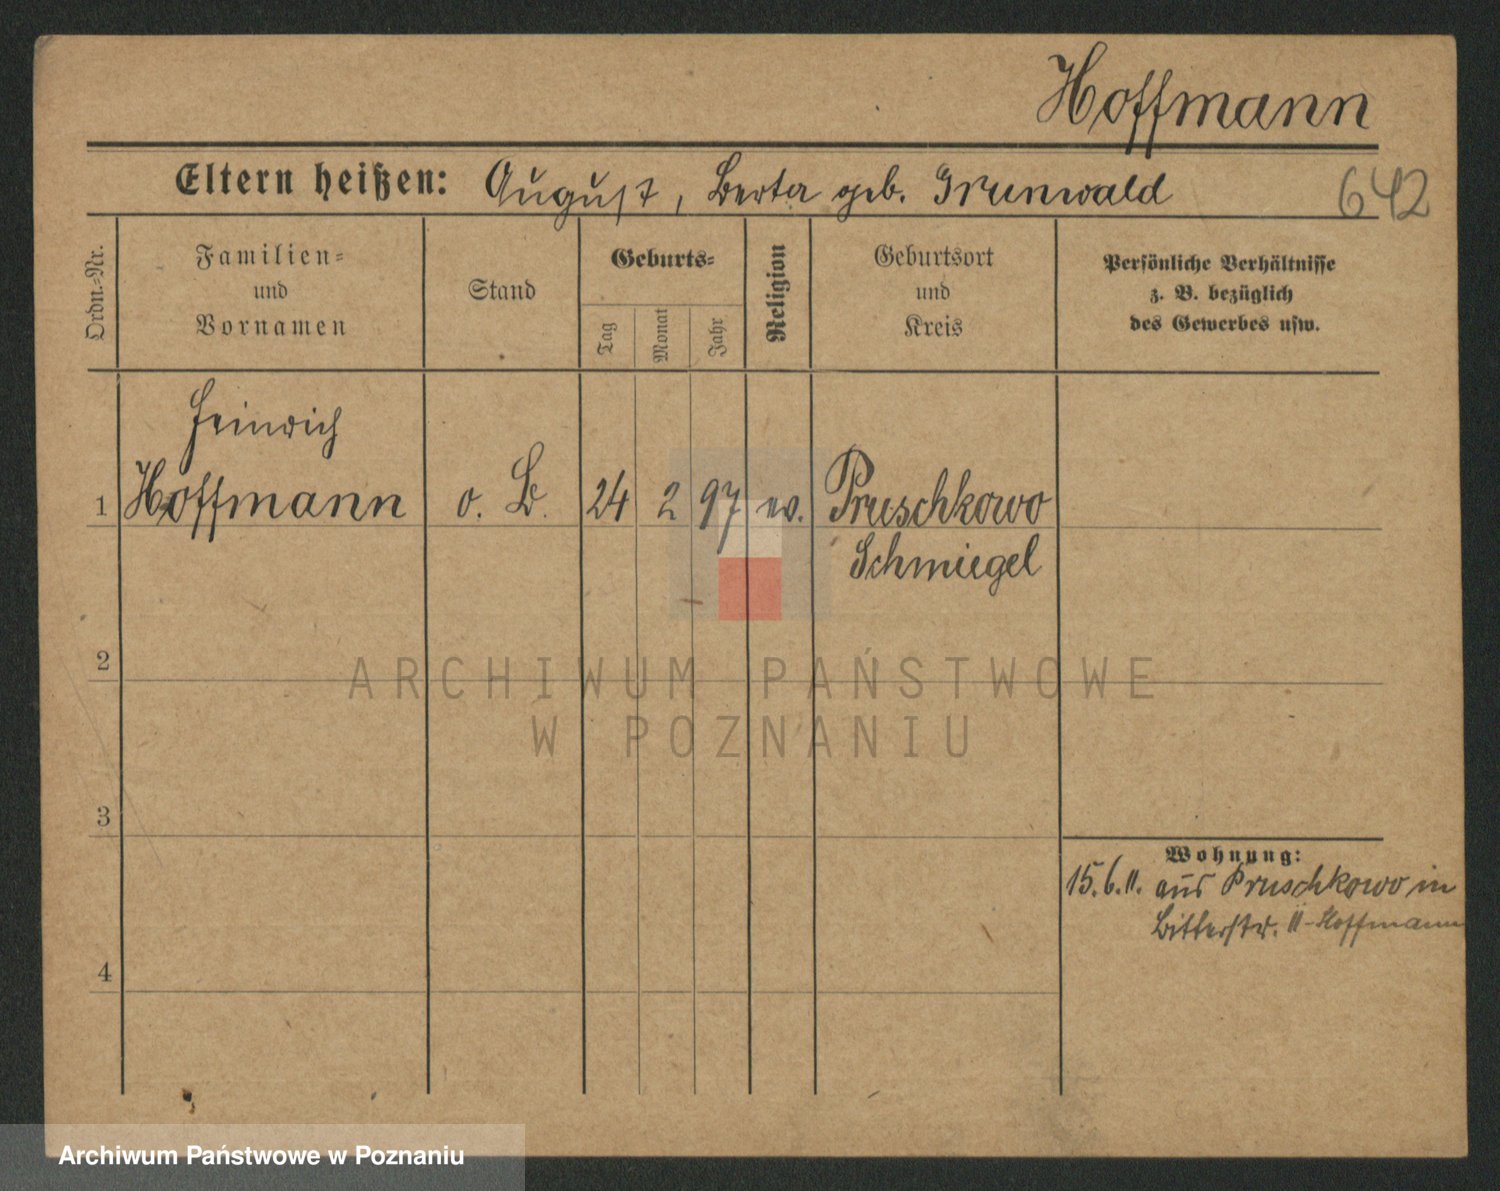 Hoffmann
Eltern heißen: August, Berta geb. Grunwald
642
Ordn.-Nr.
Familien-
und
Vornamen
Stand
Geburts-
Tag
Monat
Jahr
Religion
Geburtsort
und
Kreis
Persönliche Verhältnisse
z. B. bezüglich
des Gewerbes usw.
Heinrich
1 Hoffmann o. B. 24 2 97 ev. Pruschkowo
Schmiegel
2
ARCHIWUM PAŃSTWOWE
W POZNANIU
3
Wohnung:
15.6.11. aus Pruschkowo in
Bitterstr. 11 - Hoffmann
4
Archiwum Państwowe w Poznaniu